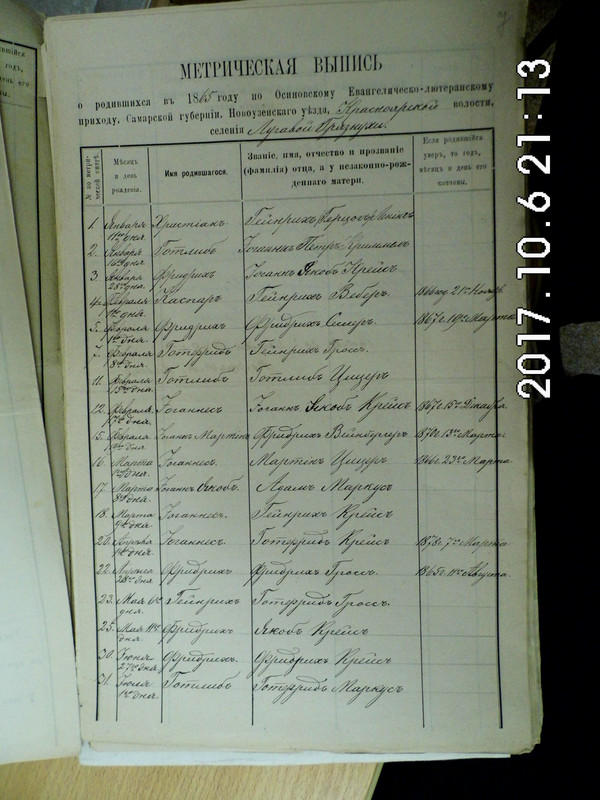 МЕТРИЧЕСКАЯ ВЫПИСЬ
о родившихся въ 1865 году по Осиновскому Евангелическо-лютеранскому
приходу, Самарской губерніи, Новоузенскаго уѣзда, Красноярской волости,
селенія Луговой Грязнухи.
№ по метрической книгѣ.
Мѣсяцъ и день рожденія.
Имя родившагося.
Званіе, имя, отчество и прозваніе
(фамилія) отца, а у незаконно-рож-
деннаго матери.
Если родившійся
умеръ, то годъ,
мѣсяцъ и день его
кончины.
1. Января Христіанъ Гейнрихъ
2. Января Готлибъ Іоганнъ Петръ
3. Января Фридрихъ Іоганнъ Якобъ Крейсъ
4. Февраля 1го дня. Каспаръ Гейнрихъ Веберъ. 21го Ноября
5. Февраля Фридрихъ Фридрихъ 1867г. 19го Марта
7. Февраля 8го дня. Готфридъ Гейнрихъ Гроссъ.
11. Февраля 15го дня. Готлибъ Готлибъ Цицеръ
12. Февраля 17го дня. Іоганнесъ Іоганнъ Якобъ Крейсъ 1867г. 15го Декабря.
15. Февраля Іоганнъ Мартинъ Фридрихъ Вейнбергеръ 1870г. 13го Марта
16. Марта Іоганнесъ. Мартинъ Цицеръ 1866г. 23го Марта
17. Марта 8го дня Іоганнъ Якобъ. Адамъ Маркусъ
18. Марта 9го дня. Іоганнесъ. Гейнрихъ Крейсъ
20. Апрѣля Іоганнесъ. Готфридъ Крейсъ 1878г. 7го Марта
22. Апрѣля 28го дня Фридрихъ Фридрихъ Гроссъ. 1865г. 11го Августа.
23. Мая 6го дня. Гейнрихъ Готфридъ Гроссъ.
25. Мая 11го дня. Фридрихъ Якобъ Крейсъ
30. Іюня 27го дня Фридрихъ. Фридрихъ Крейсъ
31. Іюля 1го дня Готлибъ Готфридъ Маркусъ
2017.10.6 21:13